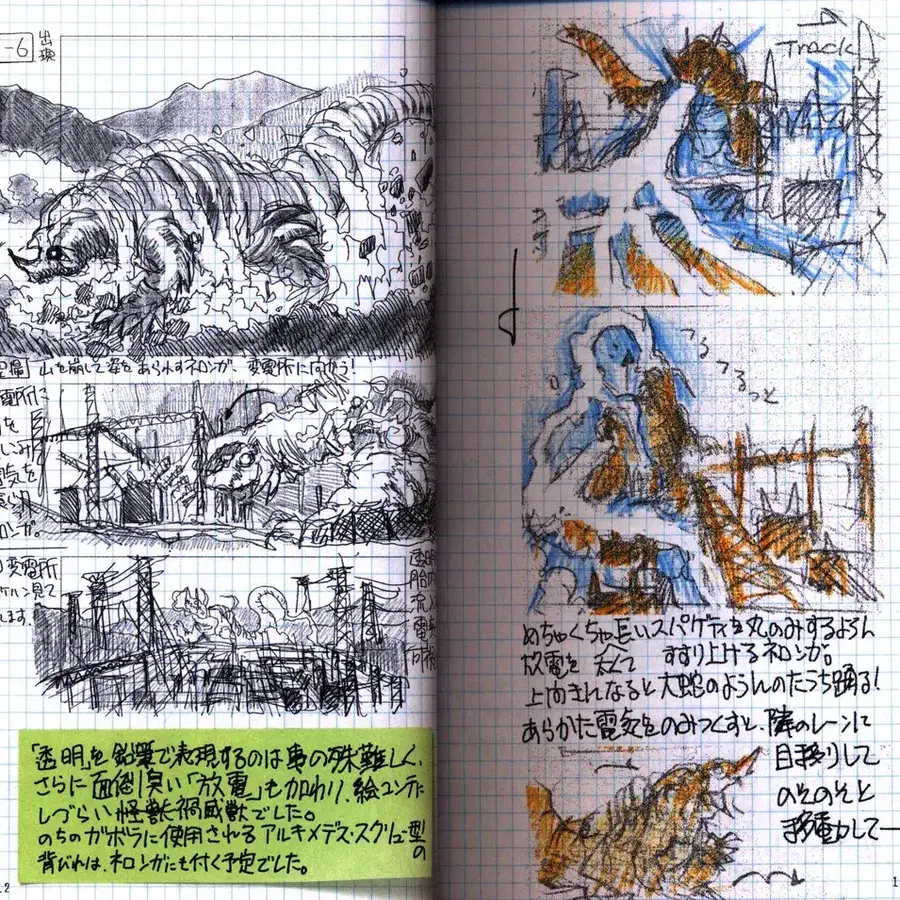 -6
出現
山を崩して姿をあらわすネロンガ、変電所に向かう!
電所に
を
電気を
ロンガ。
変電所
ケハン見て
します。
「透明」を鉛筆で表現するのは事の殊難しく、
さらに面倒臭い「放電」も加わり、絵コンテに
しづらい怪獣禍威獣でした。
のちのガボラに使用されるアルキメデス・スクリュー型の
背びれは、ネロンガにも付く予定でした。
Track
つるつるっと
めちゃくちゃ長いスパゲティを丸のみするように
放電を すすり上げるネロンガ。
上向きになると大蛇のようにのたうち踊る!
あらかた電気をのみつくすと、隣のレーンに
目移りして
のそのそと
移動して―